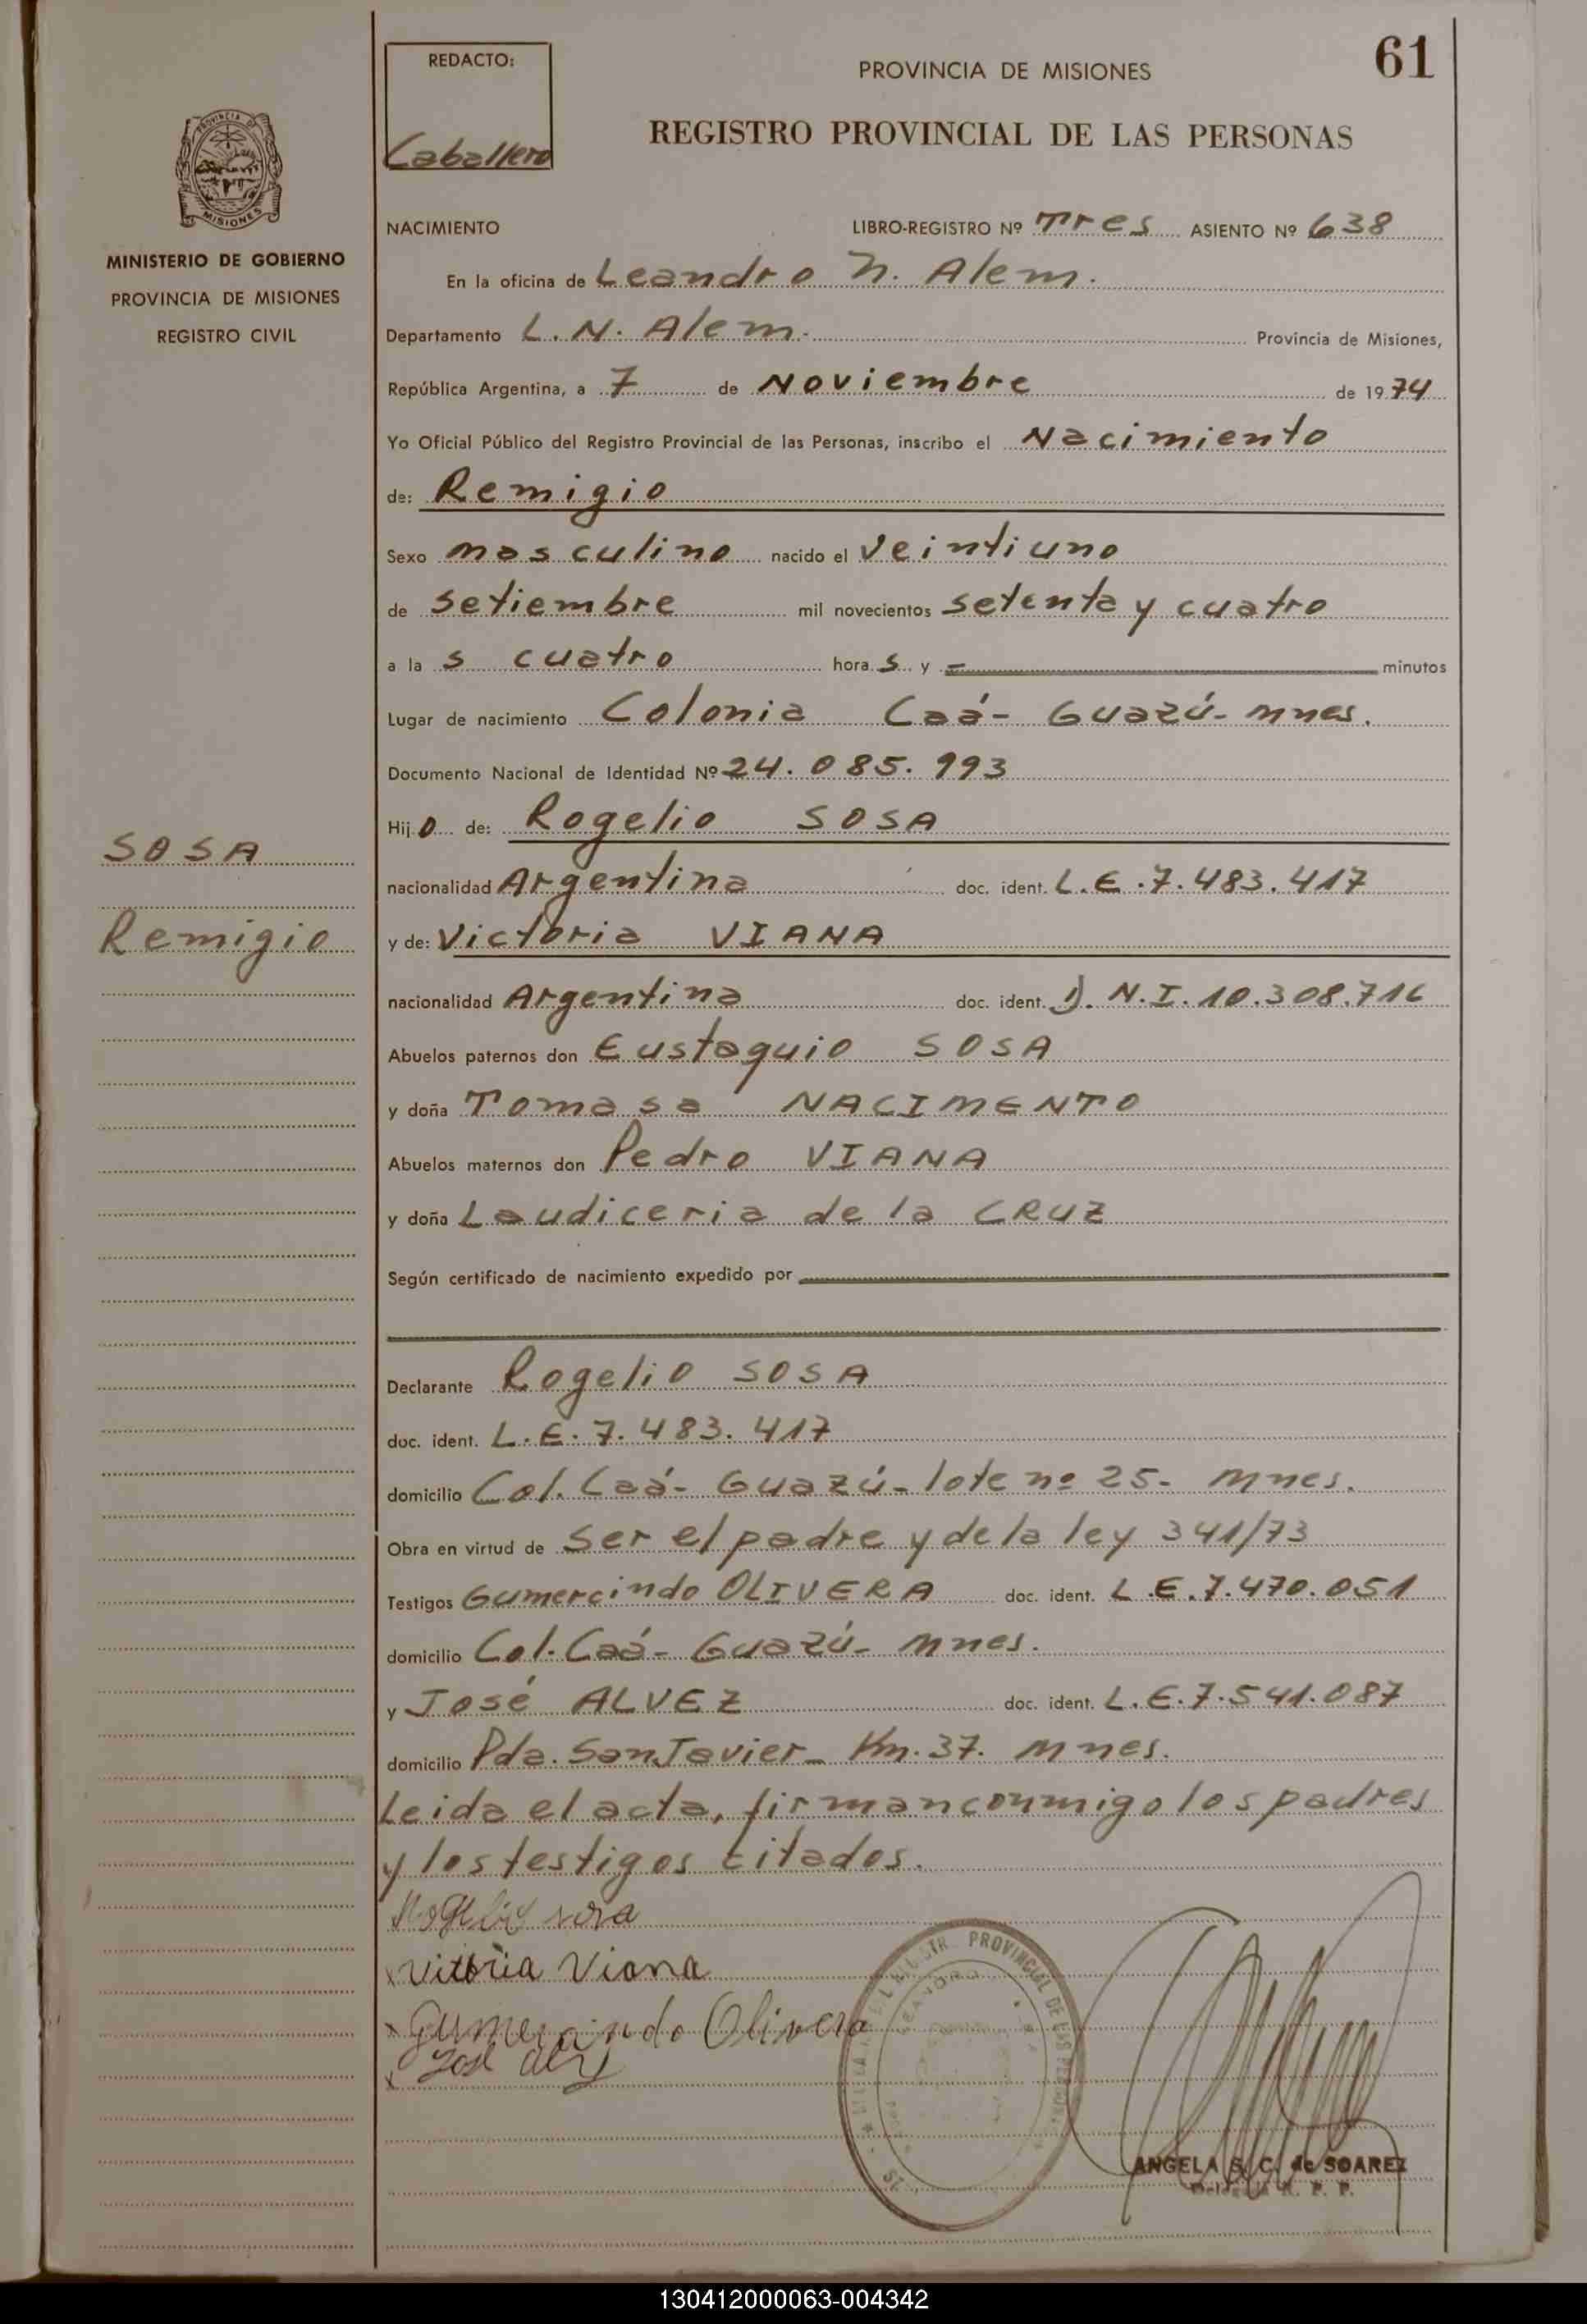 61
REDACTO:
Caballero
PROVINCIA DE MISIONES
REGISTRO PROVINCIAL DE LAS PERSONAS
PROVINCIA DE
MISIONES
MINISTERIO DE GOBIERNO
PROVINCIA DE MISIONES
REGISTRO CIVIL
NACIMIENTO LIBRO-REGISTRO Nº Tres ASIENTO Nº 638
En la oficina de Leandro N. Alem.
Departamento L. N. Alem. Provincia de Misiones,
República Argentina, a 7 de Noviembre de 1974
Yo Oficial Público del Registro Provincial de las Personas, inscribo el Nacimiento
de: Remigio
Sexo masculino nacido el Veintiuno
de Setiembre mil novecientos setenta y cuatro
a la s cuatro hora s y — minutos
Lugar de nacimiento Colonia Caá- Guazú- Mnes.
Documento Nacional de Identidad Nº 24.085.993
Hij o de: Rogelio SOSA
SOSA
nacionalidad Argentina doc. ident. L.E.7.483.417
Remigio
y de: Victoria VIANA
nacionalidad Argentina doc. ident. D.N.I.10.308.716
Abuelos paternos don Eustaquio SOSA
y doña Tomasa NACIMENTO
Abuelos maternos don Pedro VIANA
y doña Laudiceria de la CRUZ
Según certificado de nacimiento expedido por
Declarante Rogelio SOSA
doc. ident. L.E.7.483.417
domicilio Col. Caá- Guazú- lote nº 25- Mnes.
Obra en virtud de Ser el padre y de la ley 341/73
Testigos Gumercindo OLIVERA doc. ident. L.E.7.470.051
domicilio Col. Caá- Guazú- Mnes.
y José ALVEZ doc. ident. L.E.7.541.087
domicilio Pda. San Javier- Km. 37. Mnes.
Leida el acta, firman conmigo los padres
y los testigos citados.
Rogelio sosa
x Vittoria Viana
x Gumercindo Olivera
x José
PROVINCIAL DE LAS PERSONAS
LEANDRO
ANGELA S. C. de SOAREZ
Delegada R. P. P.
130412000063-004342